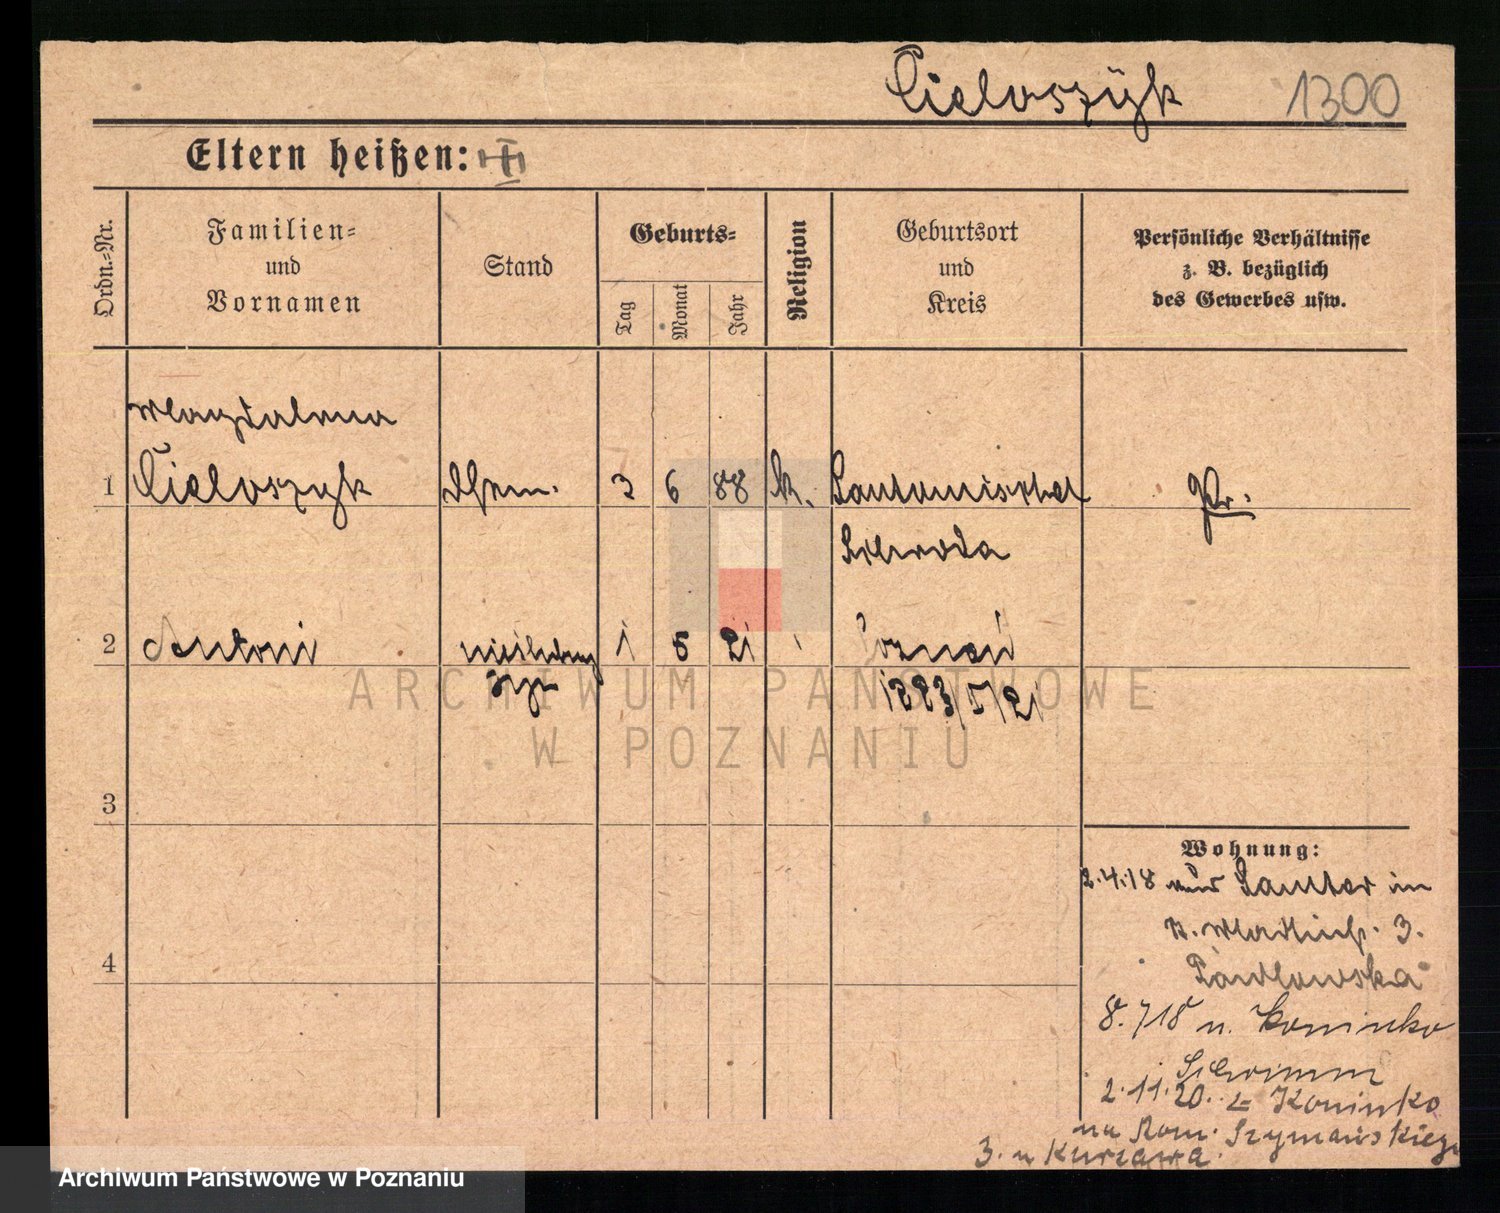 Cieloszÿk 1300
Eltern heißen:
Ordn.-Nr.
Familien-
und
Vornamen
Stand
Geburts-
Tag
Monat
Jahr
Religion
Geburtsort
und
Kreis
Persönliche Verhältnisse
z. B. bezüglich
des Gewerbes usw.
Magdalena
1 Cieloszyk 3 6 88 k. Santomischel Pr.
Schroda
2 Antoni 1 5 21 Poznań
1883/5/21
ARCHIWUM PAŃSTWOWE
W POZNANIU
3
Wohnung:
2.4.18 aus Santer in
3.
4
Pawlowska
8.718 n. Koninko
Schrimm
2.11.20. z Koninko
na Rom. Szymańskiego
3. u Kurzawa.
Archiwum Państwowe w Poznaniu